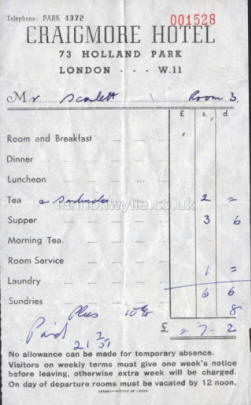 Telephone: PARK 4372
001528
CRAIGMORE HOTEL
73 HOLLAND PARK
LONDON - - - W.11
Mr Scarlett Room 3
£ s d
Room and Breakfast
Dinner
Luncheon
Tea & Sandwiches 2 =
Supper 3 6
Morning Tea
Room Service
Laundry 1 =
6 6
Sundries
Plus 10% 8
£ = 7 - 2
Paid
No allowance can be made for temporary absence.
Visitors on weekly terms must give one week's notice
before leaving, otherwise extra week will be charged.
On day of departure rooms must be vacated by 12 noon.